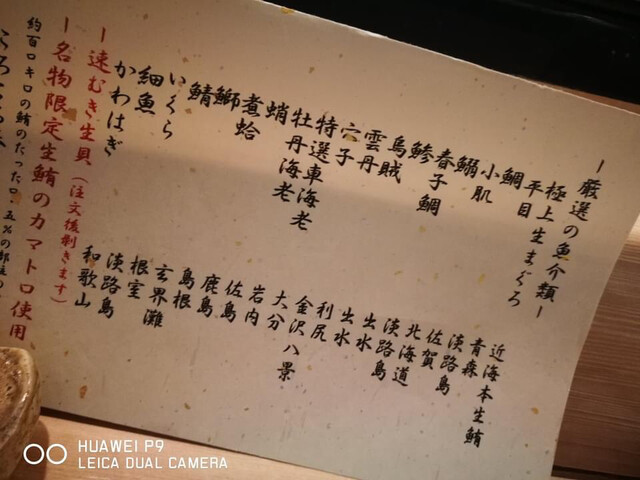 ー厳選の魚介類ー
極上生まぐろ 近海本生鮪
平目 青森
鯛 淡路島
小肌 佐賀
鰯 北海道
春子鯛 淡路島
鯵 出水
烏賊 出水
雲丹 利尻
穴子 金沢八景
特選車海老 大分
牡丹海老 岩内
蛸 佐島
煮蛤 鹿島
鰤 島根
鯖 玄界灘
いくら 根室
細魚 淡路島
かわはぎ 和歌山
ー速むき生貝（注文後剥きます）
ー名物限定生鮪のカマトロ使用
約百口キロの鮪のたった口、五%の部位の
HUAWEI P9
LEICA DUAL CAMERA